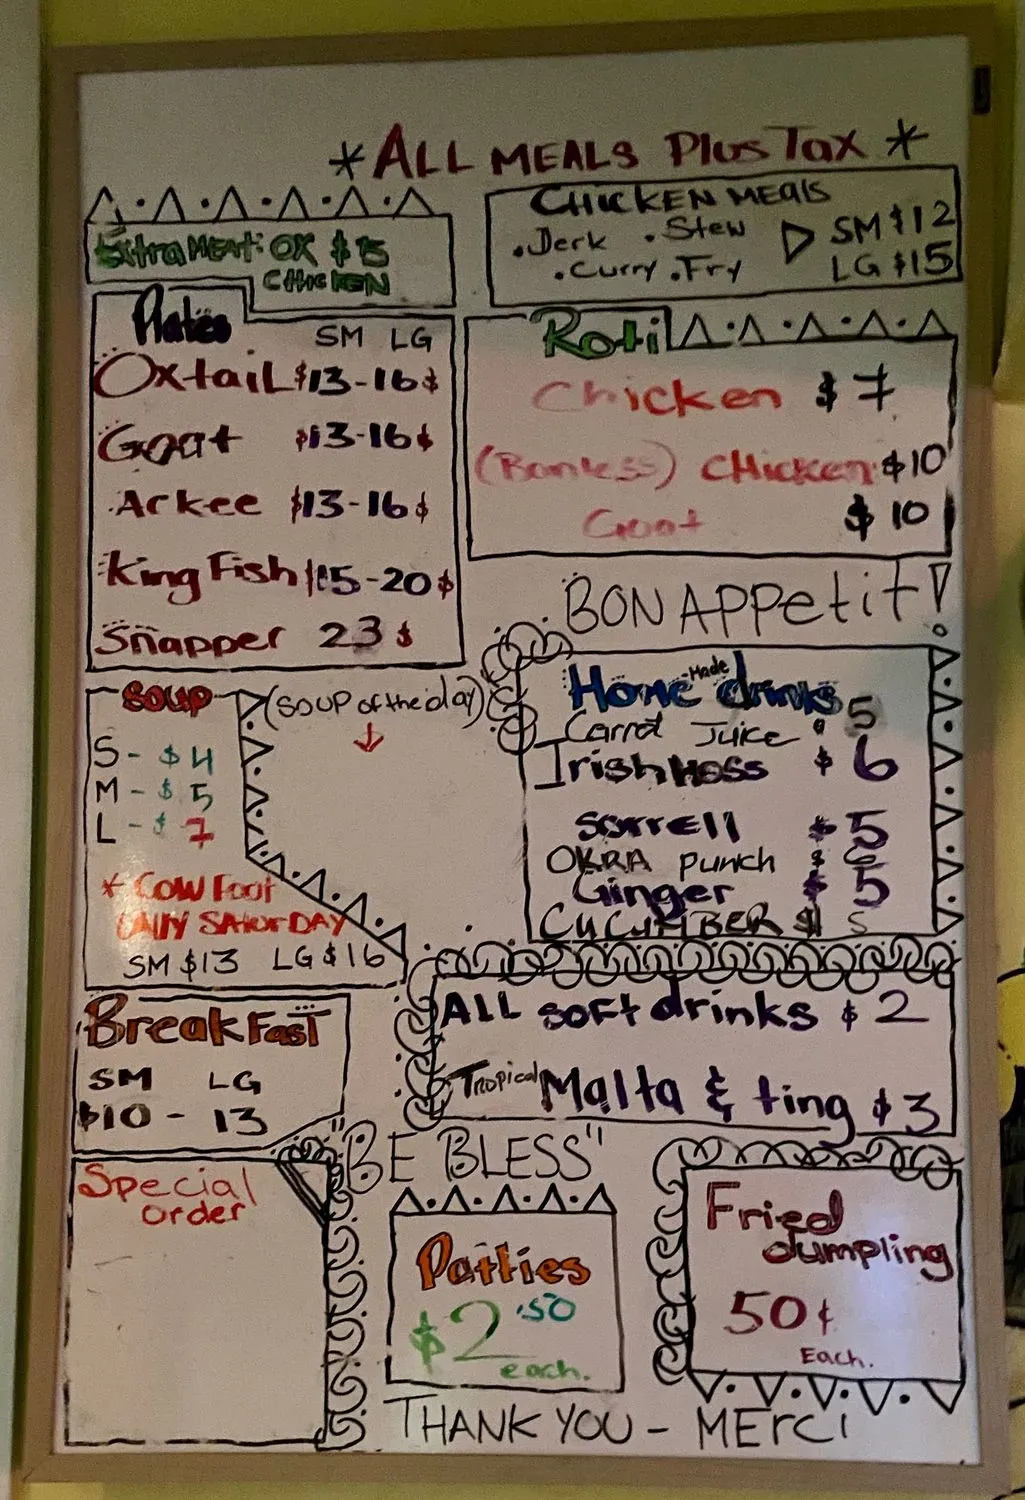 * ALL MEALS Plus Tax *
Extra MEAT: OX $5
CHICKEN
CHICKEN MEALS
.Jerk .Stew
.Curry .Fry
SM $12
LG $15
Plates
SM LG
OxtaiL $13-16$
Goat $13-16$
Arkee $13-16$
King Fish $15-20$
Snapper 23 $
Roti
Chicken $7
(Bonless) CHicken $10
Goat $10
BON APPetit!
Home Made drinks
Carrot Juice $ 5
Irish Moss $ 6
sorrell $ 5
OKRA punch $ 6
Ginger $ 5
CUCUMBER $ 5
SOUP
(SOUP of the day)
S - $4
M - $5
L - $7
* COW Foot
ONLY SATURDAY
SM $13 LG $16
ALL soft drinks $2
Tropical Malta & ting $3
BreakFasT
SM LG
$10 - 13
"BE BLESS"
Special
order
Patties
$2.50
each.
Fried
dumpling
50¢
EACH.
THANK YOU - MERCI